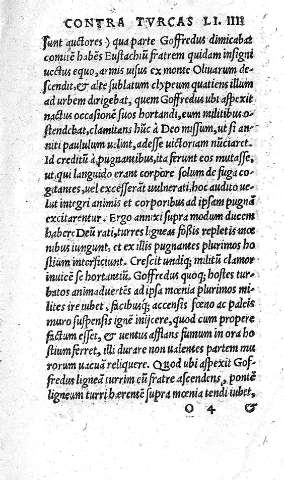 CONTRA TVRCAS LI. IIII
sunt auctores) qua parte Goffredus dimicabat
comitē habēs Eustachiū fratrem quidam insigni
uectus equo, armis uisus ex monte Oliuarum de-
scendit, & alte sublatum clypeum quatiens illum
ad urbem dirigebat, quem Goffredus ubi aspexit
nactus occasionē suos hortandi, eum militibus o-
stendebat, clamitans hūc à Deo missum, ut si an-
niti paululum uelint, adesse uictoriam nūciaret.
Id creditū à pugnantibus, ita serunt eos mutasse,
ut, qui languido erant corpore solum de fuga co-
gitantes, uel excesserāt uulnerati, hoc audito ue-
lut integri animis et corporibus ad ipsam pugnā
excitarentur. Ergo annixi supra modum ducem
habere Deū rati, turres ligneas fossis repletis mœ
nibus iungunt, et ex illis pugnantes plurimos ho
stium interficiunt. Crescit undiq; militū clamor
inuicē se hortantiū. Goffredus quoq; hostes tur-
batos animaduertēs ad ipsa mœnia plurimos mi-
lites ire iubet, facibusq; accensis fœno ac paleis
muro suspensis ignē inijcere, quod cum propere
factum esset, & uentus afflans fumum in ora ho
stium ferret, illi durare non ualentes partem mu
rorum uacuā reliquere. Quod ubi aspexit Gof-
fredus ligneā turrim cū fratre ascendens, pontē
ligneum turri hærentē supra mœnia tendi iubet,
O 4 &